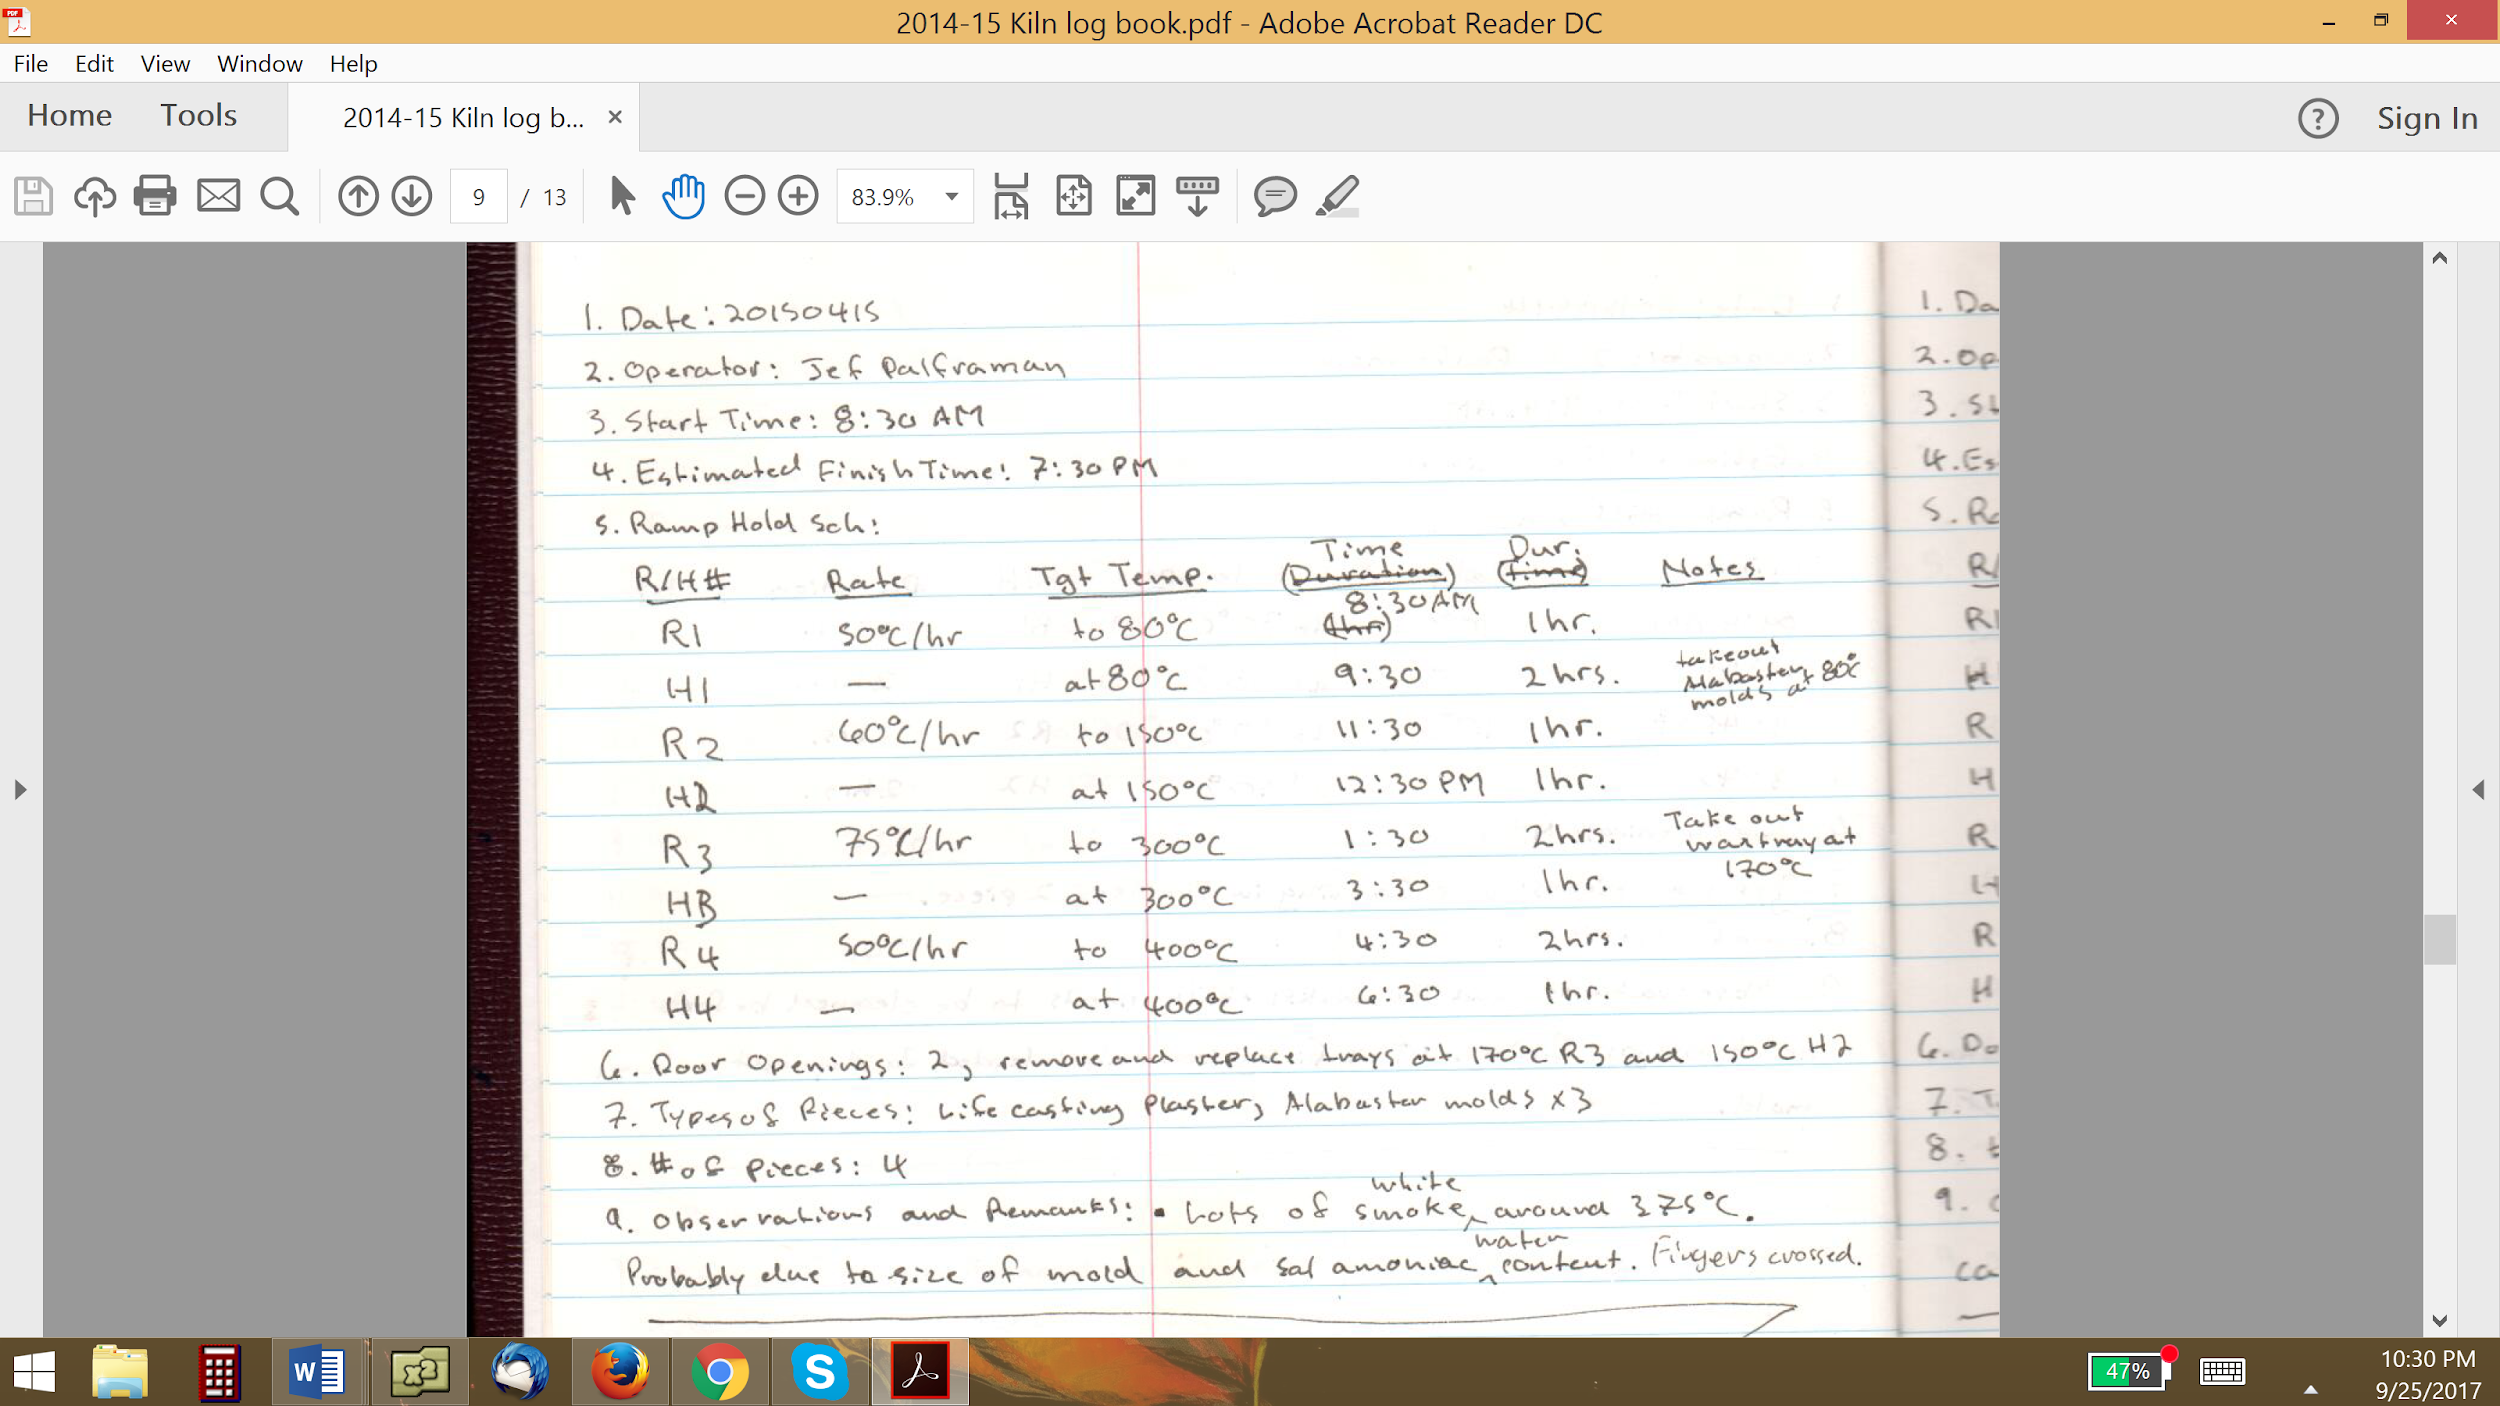 2014-15 Kiln log book.pdf - Adobe Acrobat Reader DC
File Edit View Window Help
Home Tools 2014-15 Kiln log b... × ? Sign In
9 / 13 83.9%
1. Date: 20150415
2. Operator: Jef Palframan
3. Start Time: 8:30 AM
4. Estimated Finish Time: 7:30 PM
5. Ramp Hold Sch:
Time Dur.
R/H# Rate Tgt Temp. (Duration) (time) Notes
8:30 AM
R1 50°C/hr to 80°C (1hr) 1hr.
H1 — at 80°C 9:30 2hrs. takeout Alabaster molds at 80°C
R2 60°C/hr to 150°C 11:30 1hr.
H2 — at 150°C 12:30 PM 1hr.
R3 75°C/hr to 300°C 1:30 2hrs. Take out wax tray at 170°C
H3 — at 300°C 3:30 1hr.
R4 50°C/hr to 400°C 4:30 2hrs.
H4 — at 400°C 6:30 1hr.
6. Door Openings: 2, remove and replace trays at 170°C R3 and 150°C H2
7. Types of Pieces: Life casting Plaster, Alabaster molds x3
8. # of pieces: 4
9. Observations and Remarks: • Lots of white smoke, around 375°C.
Probably due to size of mold and sal amoniac water content. Fingers crossed.
1. Da
2. Op
3. St
4. Es
5. Ra
R/
R1
H
R
H
R
H
R
H
6. Do
7. T
8. #
9. O
ca
47%
10:30 PM
9/25/2017